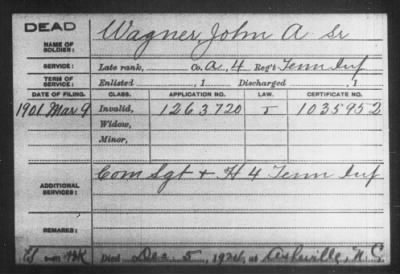 DEAD
NAME OF SOLDIER: Wagner, John A Sr
SERVICE: Late rank, Co. A, 4 Reg't Tenn Inf
TERM OF SERVICE: Enlisted , 1 Discharged , 1
DATE OF FILING. CLASS. APPLICATION NO. LAW. CERTIFICATE NO.
1901 Mar 9 Invalid, 1263720 1035952
Widow,
Minor,
ADDITIONAL SERVICES: Com Sgt + H 4 Tenn Inf
REMARKS:
Died Dec 5, 1924, at Asheville, N.C.